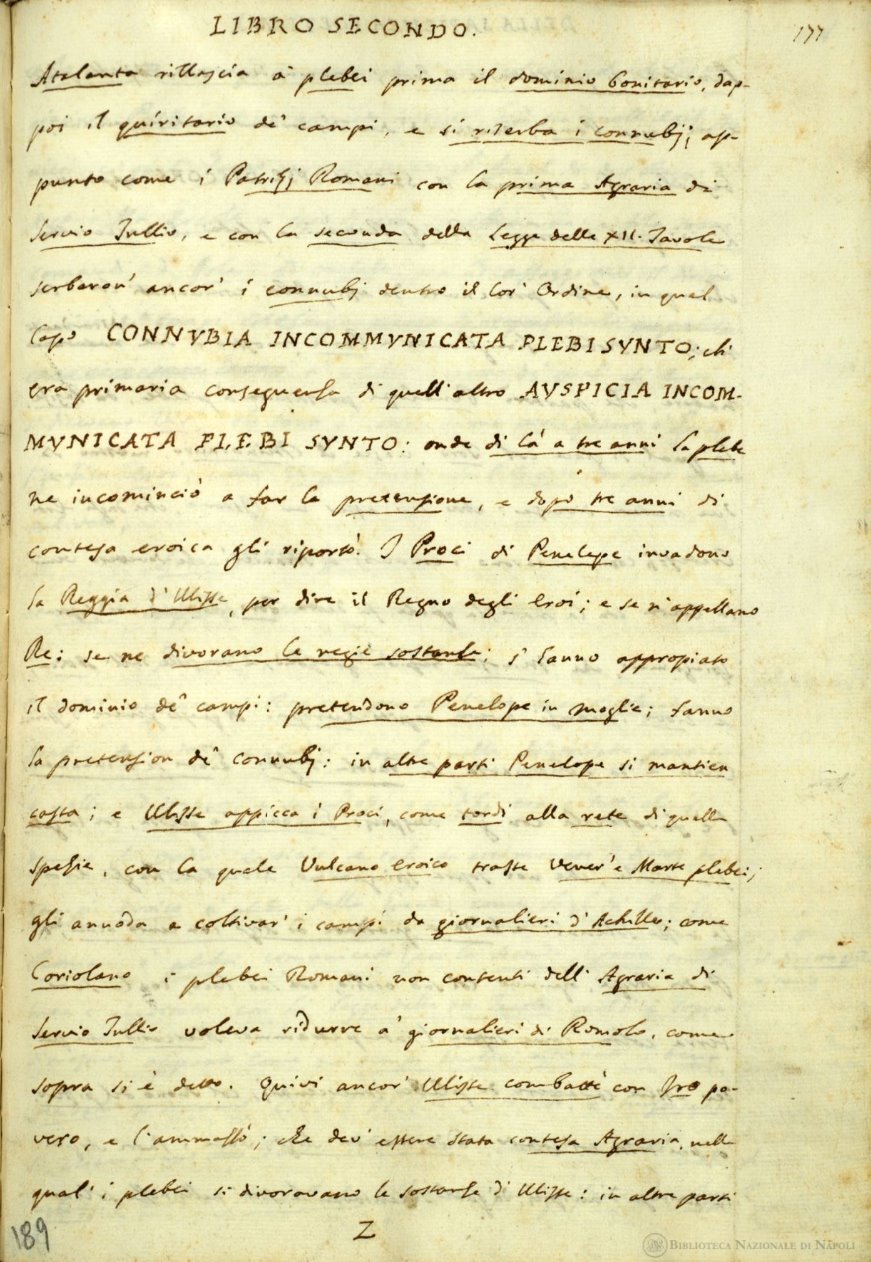 LIBRO SECONDO.
177
Atalanta rillascia a' plebei prima il dominio bonitario, dap-
poi il quiritario de' campi, e si riserba i connubj; ap-
punto come i Patrizj Romani con la prima Agraria di
Servio Tullio, e con la seconda della Legge delle XII. Tavole
serbaron' ancor' i connubj dentro il lor' Ordine, in quel
Capo CONNVBIA INCOMMVNICATA PLEBI SVNTO; ch'
era primaria conseguenza di quell'altro AVSPICIA INCOM-
MVNICATA PLEBI SVNTO: onde di là a tre anni la plebe
ne incominciò a far la pretensione, e dopo tre anni di
contesa eroica gli riportò. I Proci di Penelope invadono
la Reggia d'Ulisse, per dire il Regno degli Eroi; e se n'appellano
Re: se ne divorano le regie sostanze; s'hanno appropiato
il dominio de' campi: pretendono Penelope in moglie; fanno
la pretension de' connubj: in altre parti Penelope si mantien
casta; e Ulisse appicca i Proci, come tordi alla rete di quella
spezie, con la quale Vulcano eroico trasse Vener' e Marte plebei;
gli annoda a coltivar' i campi da giornalieri d'Achille; come
Coriolano i plebei Romani non contenti dell'Agraria di
Servio Tullio voleva ridurre a' giornalieri di Romolo, come
sopra si è detto. Quivi ancor' Ulisse combatte con Iro po-
vero, e l'ammazzò; che dev' essere stata contesa Agraria, nella
qual' i plebei si divoravano le sostanze d'Ulisse: in altre parti
Z
189
BIBLIOTECA NAZIONALE DI NAPOLI